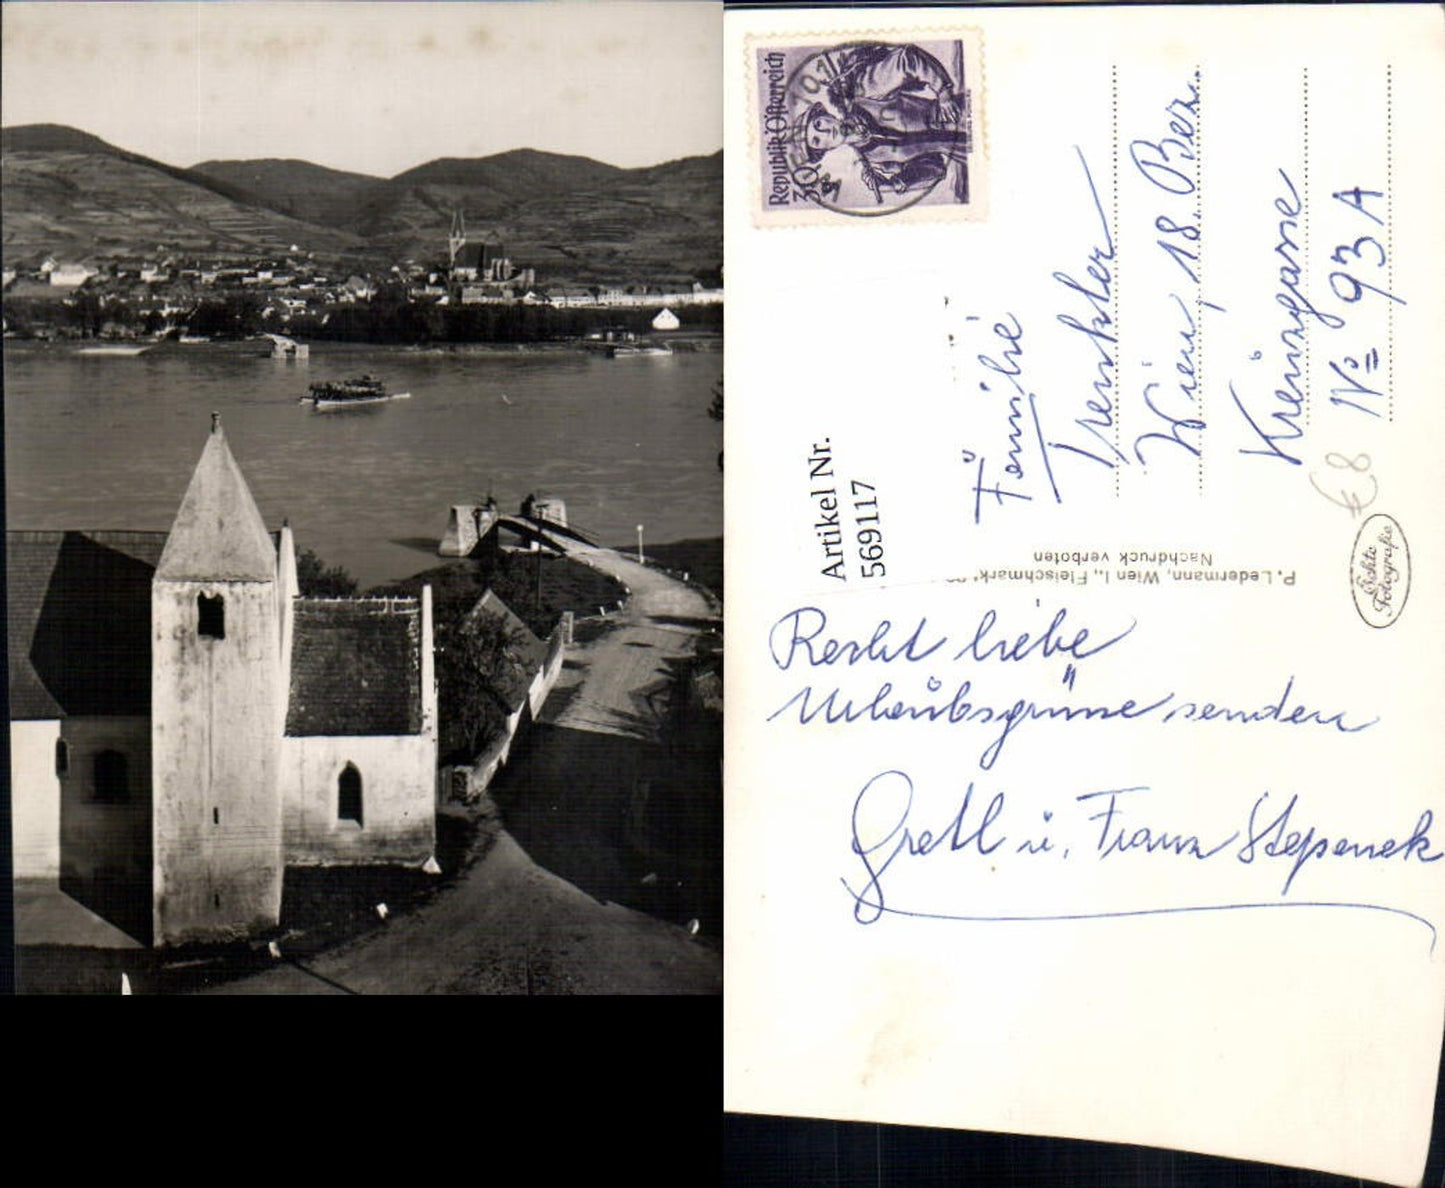 Republik Österreich
30 g
Artikel Nr.
569117
Familie
Trenkler
Wien, 18. Bez.
Kreuzgasse
No 93 A
€ 8
P. Ledermann, Wien I., Fleischmarkt
Nachdruck verboten
Echte
Fotografie
Recht liebe
Urlaubsgrüsse senden
Gretl u. Franz Stepanek